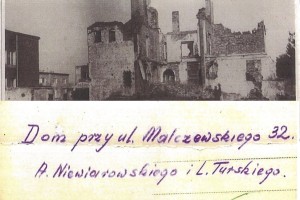 Dom przy ul. Malczewskiego 32.
A. Niewiarowskiego i L. Turskiego.